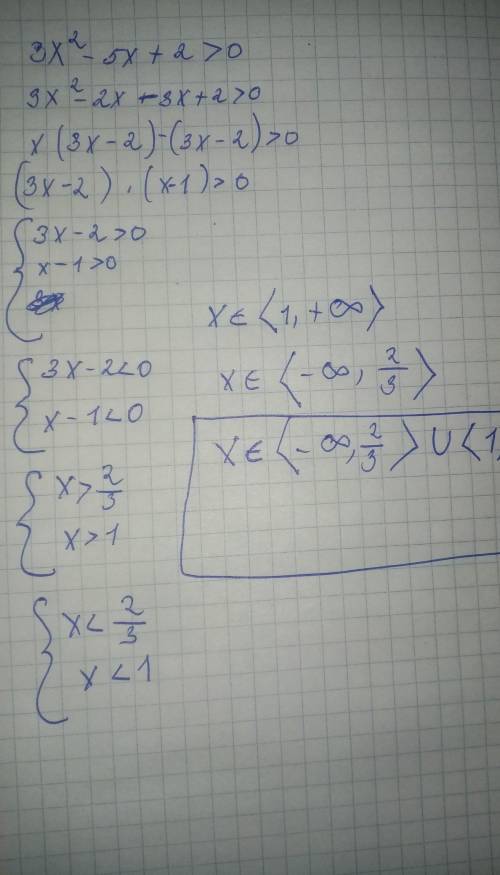 3x² - 5x + 2 > 0
3x² - 2x - 3x + 2 > 0
x (3x - 2) - (3x - 2) > 0
(3x - 2) · (x - 1) > 0
{ 3x - 2 > 0
x - 1 > 0
{ 3x - 2 < 0
x - 1 < 0
{ x > 2/3
x > 1
{ x < 2/3
x < 1
x ∈ ⟨1, +∞⟩
x ∈ ⟨-∞, 2/3⟩
x ∈ ⟨-∞, 2/3⟩ ∪ ⟨1,